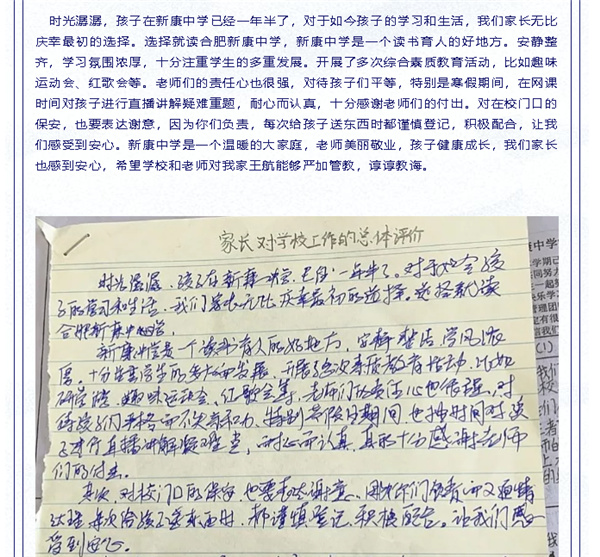 时光潺潺，孩子在新康中学已经一年半了，对于如今孩子的学习和生活，我们家长无比
庆幸最初的选择。选择就读合肥新康中学，新康中学是一个读书育人的好地方。安静整
齐，学习氛围浓厚，十分注重学生的多重发展。开展了多次综合素质教育活动，比如趣味
运动会、红歌会等。老师们的责任心也很强，对待孩子们平等，特别是寒假期间，在网课
时间对孩子进行直播讲解疑难重题，耐心而认真，十分感谢老师们的付出。对在校门口的
保安，也要表达谢意，因为你们负责，每次给孩子送东西时都谨慎登记，积极配合，让我
们感受到安心。新康中学是一个温暖的大家庭，老师美丽敬业，孩子健康成长，我们家长
也感到安心，希望学校和老师对我家王航能够严加管教，谆谆教诲。
家长对学校工作的总体评价
时光潺潺，孩子在新康中学，已有一年半了。对于如今孩
子的学习和生活，我们家长无比庆幸最初的选择，选择就读
合肥新康中学。
新康中学是一个读书育人的好地方，安静整洁，学风浓
厚，十分注重学生的多方面发展，开展了多次素质教育活动，比如
研学、趣味运动会、红歌会等，老师们的责任心也很强，对
待孩子们平等而不失亲和力，特别是假日期间，也抽时间对孩
子进行直播讲解疑难重点，耐心而认真，真的十分感谢老师
们的付出。
其次，对校门口的保安也要表达谢意，因为你们负责而又通情
达理，每次给孩子送东西时，都谨慎登记，积极配合。让我们感
受到安心。